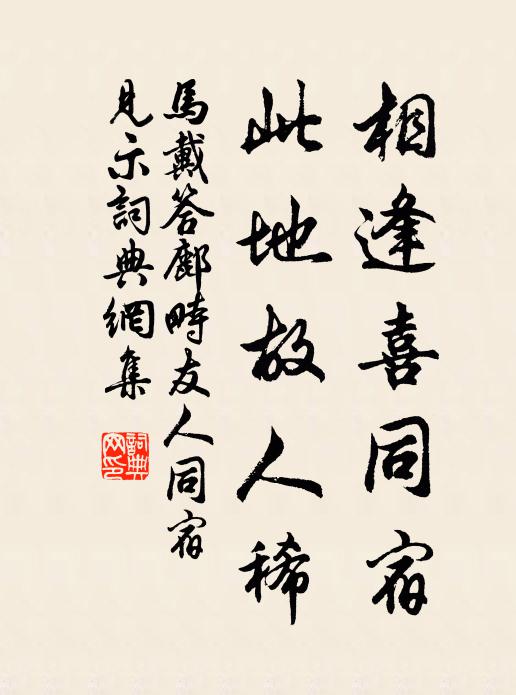 相逢喜同宿
此地故人稀
馬戴答鄜畤友人同宿
見示詞典網集
詞典網印